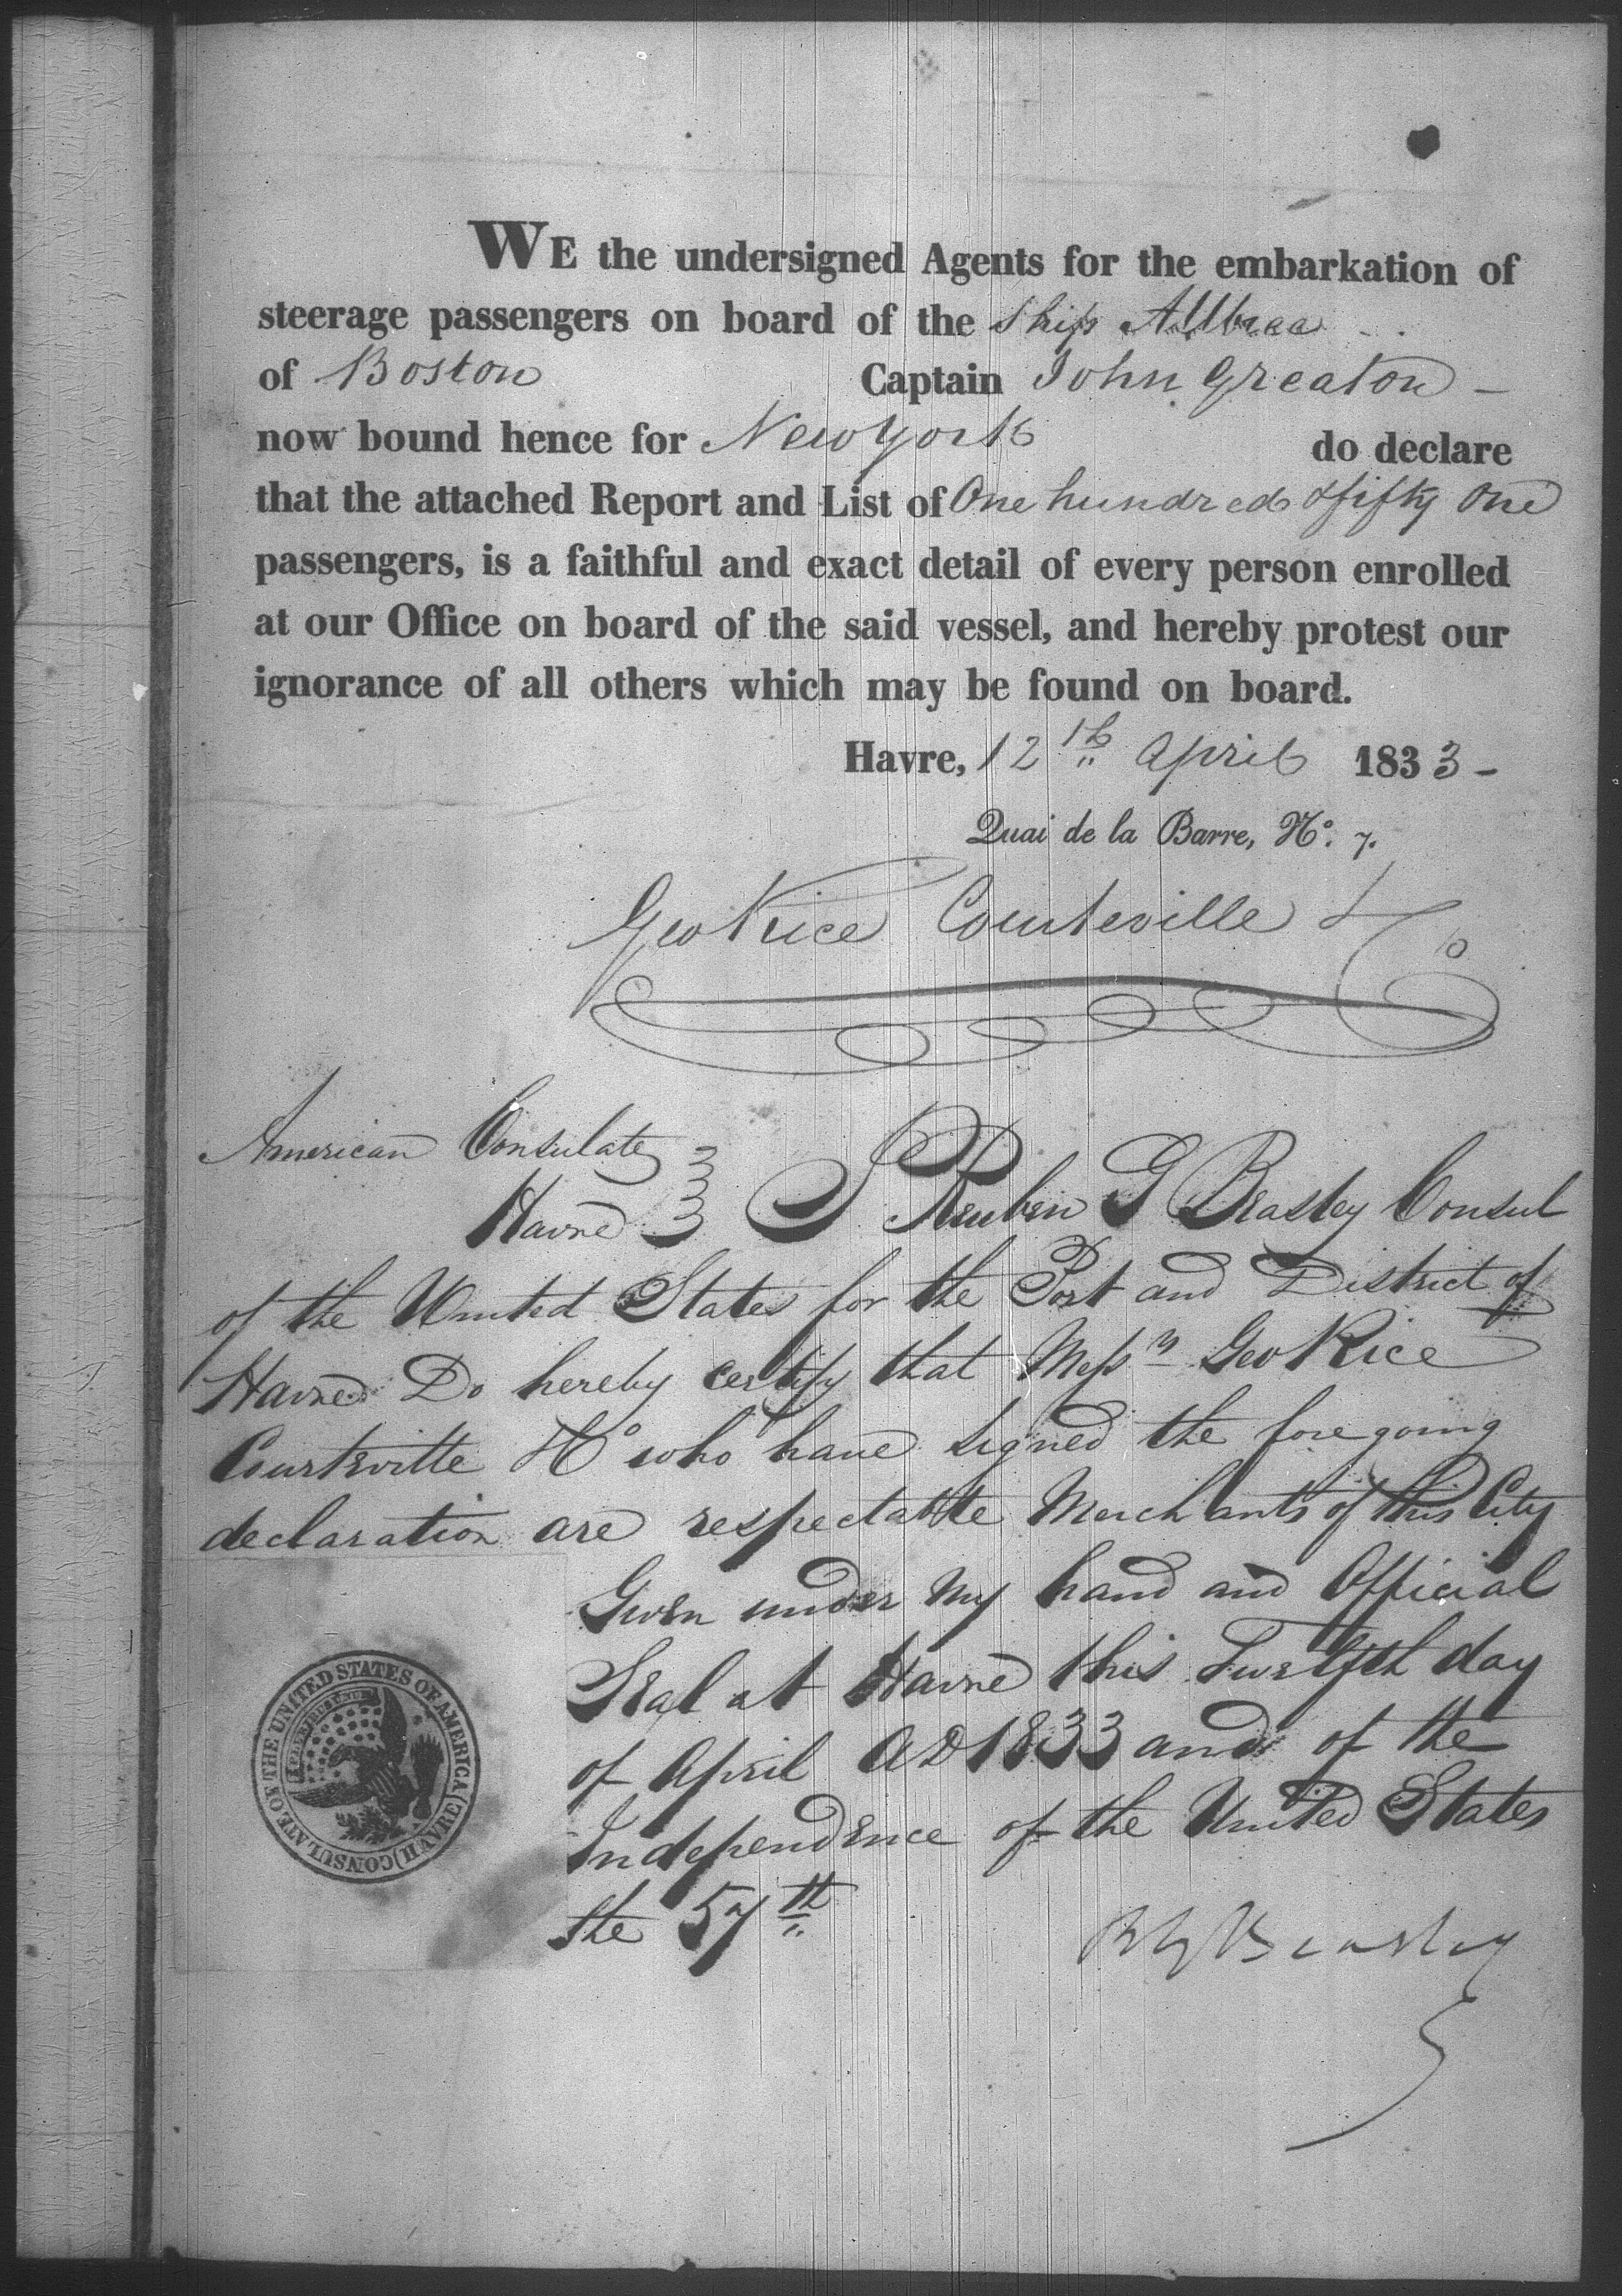 WE the undersigned Agents for the embarkation of
steerage passengers on board of the Ship
of Boston Captain John Greaton -
now bound hence for New York do declare
that the attached Report and List of One hundred & fifty One
passengers, is a faithful and exact detail of every person enrolled
at our Office on board of the said vessel, and hereby protest our
ignorance of all others which may be found on board.
Havre, 12th April 1833 -
Quai de la Barre, No. 7.
Geo Rice Courteville & Co
American Consulate
Havre } I Reuben G Beasley Consul
of the United States for the Port and District of
Havre Do hereby certify that Messrs Geo Rice
Courteville & Co who have signed the foregoing
declaration are respectable Merchants of this City
Given under my hand and Official
Seal at Havre this Twelfth day
of April AD 1833 and of the
Independence of the United States
the 57th
R G Beasley
CONSULATE OF THE UNITED STATES OF AMERICA (HAVRE)
E PLURIBUS UNUM